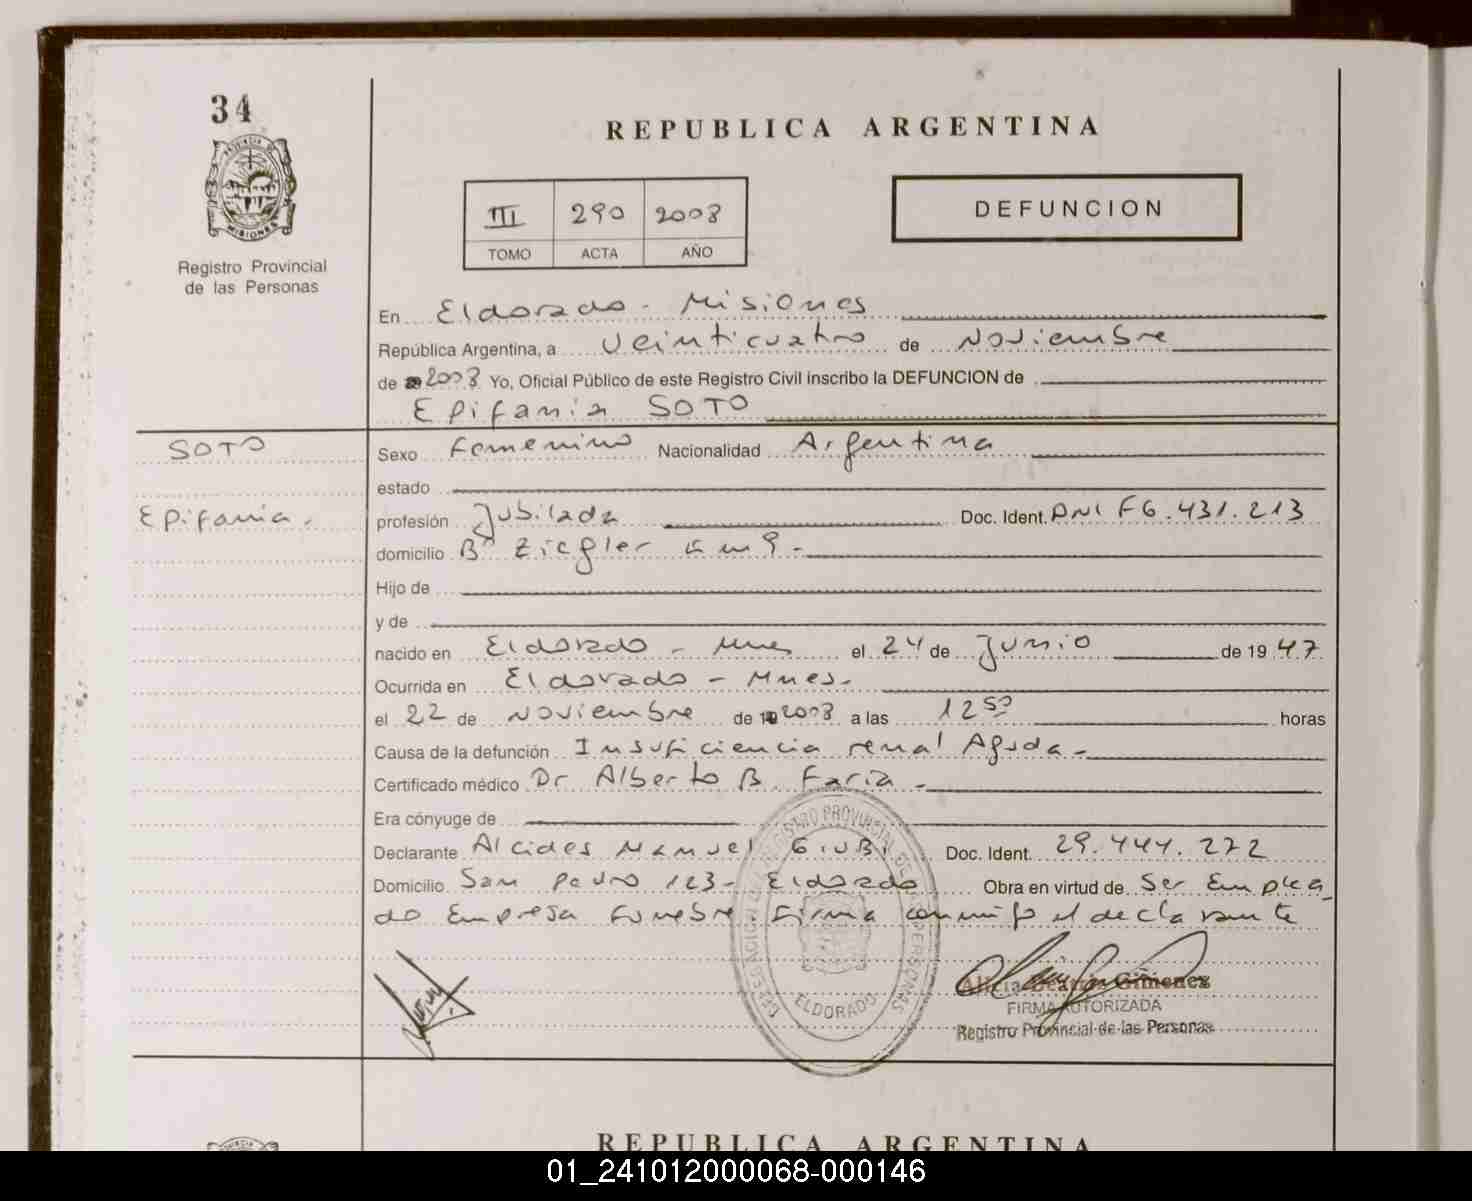 34
REPUBLICA ARGENTINA
III 290 2008
DEFUNCION
TOMO ACTA AÑO
Registro Provincial
de las Personas
En Eldorado - Misiones
República Argentina, a Veinticuatro de Noviembre
de 2008 Yo, Oficial Público de este Registro Civil inscribo la DEFUNCION de
Epifania SOTO
SOTO
Sexo Femenino Nacionalidad Argentina
estado
Epifania.
profesión Jubilada Doc. Ident. DNI F6.431.213
domicilio Bº Ziegler Km 9 -
Hijo de
y de
nacido en Eldorado - Mnes el 24 de Junio de 1947
Ocurrida en Eldorado - Mnes.
el 22 de Noviembre de 2008 a las 12 50 horas
Causa de la defunción Insuficiencia renal Aguda -
Certificado médico Dr. Alberto B. Faria -
Era cónyuge de
Declarante Alcides Manuel GIUBI Doc. Ident. 29.444.272
Domicilio San Pedro 123 - Eldorado Obra en virtud de Ser Emplea
do Empresa Funebre. Firma conmigo el declarante
DELEGACION REGISTRO PROVINCIAL DE LAS PERSONAS
ELDORADO
Alicia Beatriz Gimenez
FIRMA AUTORIZADA
Registro Provincial de las Personas
REPUBLICA ARGENTINA
01_241012000068-000146